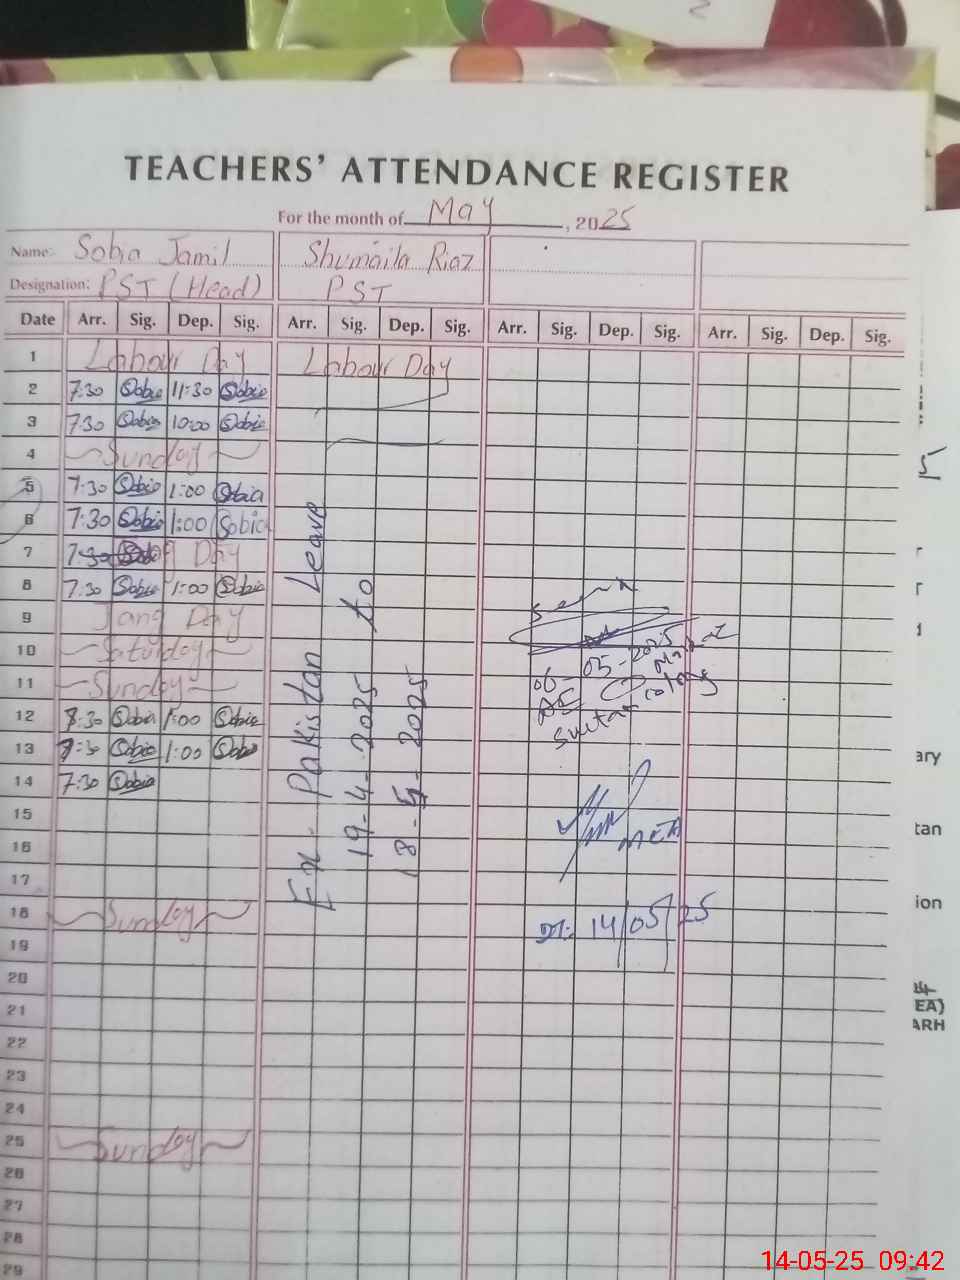 TEACHERS' ATTENDANCE REGISTER
For the month of May, 2025
Name:- Sobia Jamil Shumaila Riaz
Designation: PST (Head) PST
Date Arr. Sig. Dep. Sig. Arr. Sig. Dep. Sig. Arr. Sig. Dep. Sig. Arr. Sig. Dep. Sig.
1 Labour Day Labour Day
2 7:30 Sobia 11:30 Sobia
3 7:30 Sobia 10:00 Sobia
4 Sunday
5 7:30 Sobia 1:00 Sobia
6 7:30 Sobia 1:00 Sobia
7 7:30 Day
8 7:30 Sobia 1:00 Sobia
9 Jang Day
10 Saturday
11 Sunday
12 7:30 Sobia 1:00 Sobia
13 7:30 Sobia 1:00 Sobia
14 7:30 Sobia
15
16
17
18 Sunday
19
20
21
22
23
24
25 Sunday
26
27
28
29
Ex-Pakistan Leave
19-4-2025 to
18-5-2025
06-05-2025
MEA
Dt: 14/05/25
ary
tan
ion
EA)
ARH
14-05-25 09:42